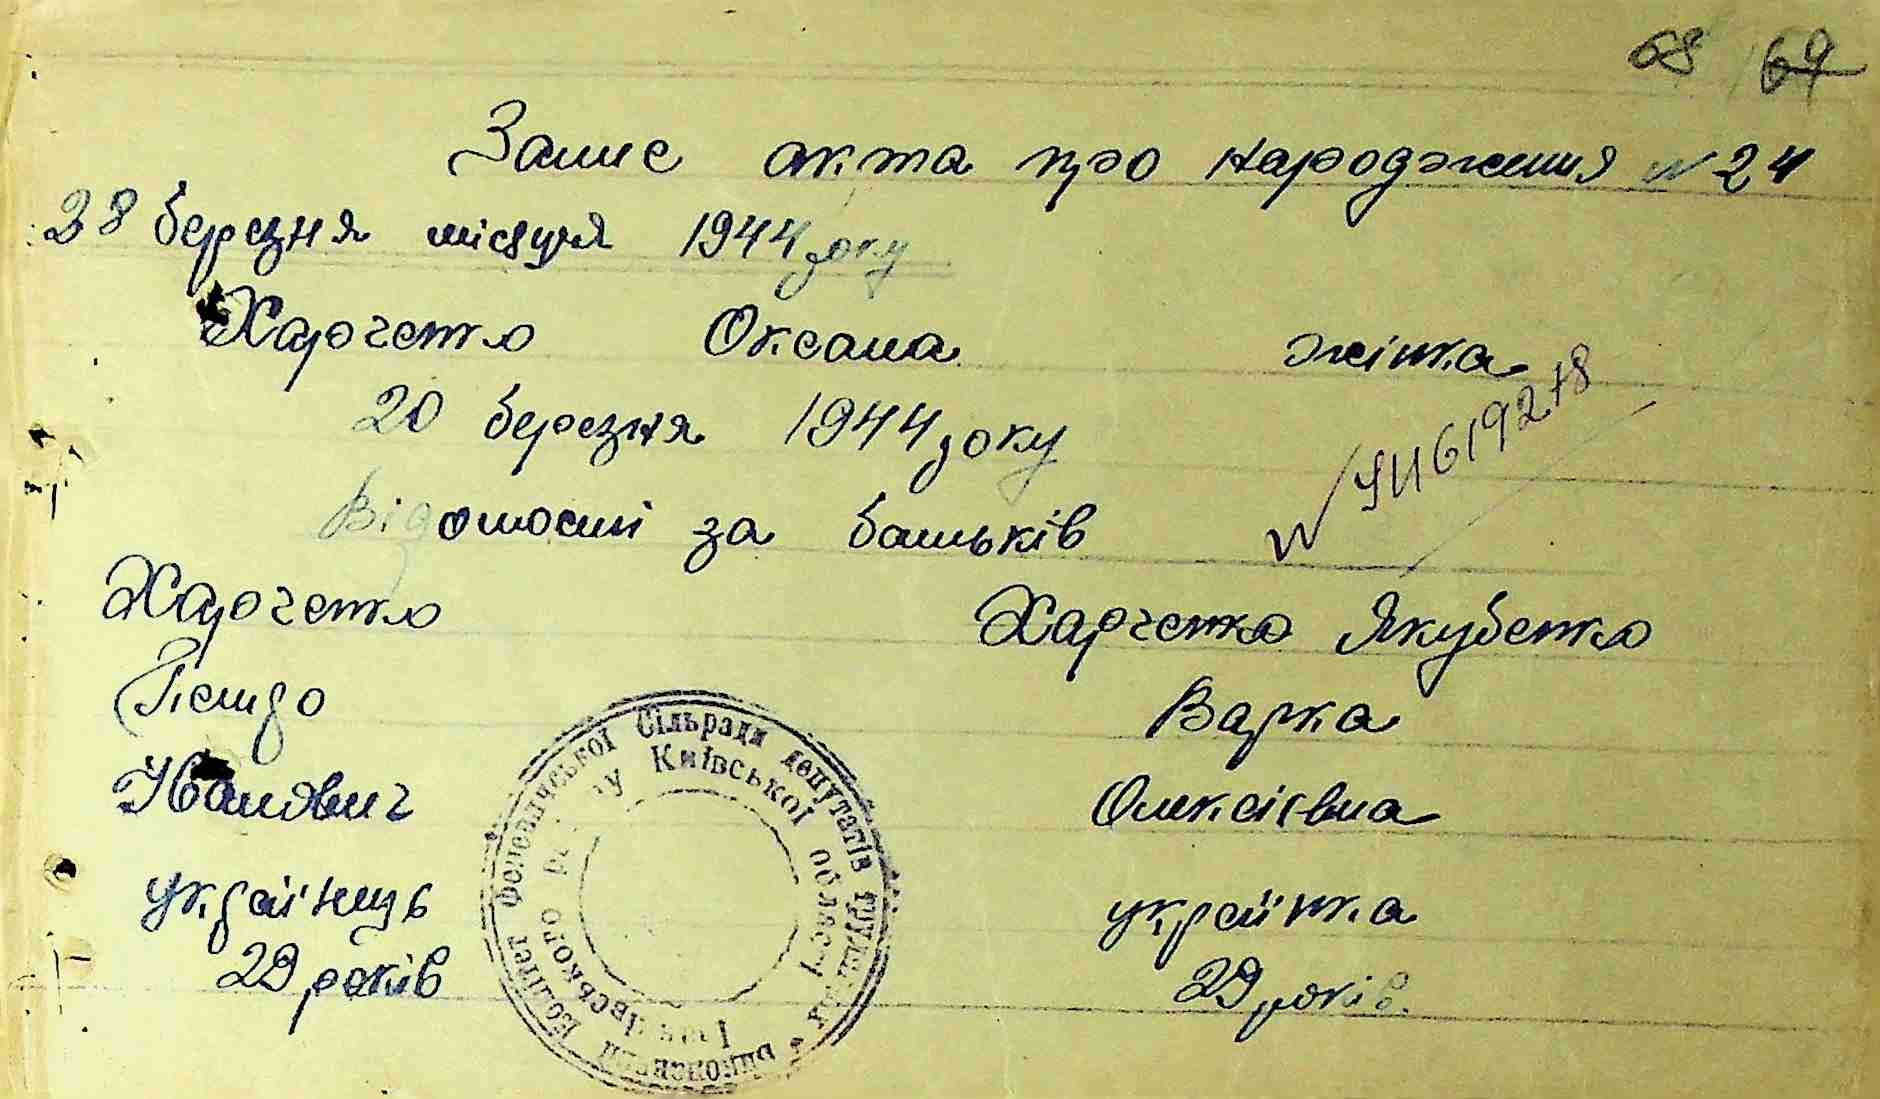 68 69
Запис акта про народження N 24
28 березня місяця 1944 року
Харченко Оксана жінка
20 березня 1944 року
Відомості за батьків
Харченко Харченко Якубенко
Петро Варка
Іванович Олексіївна
українець українка
29 років 29 років.
619278
Виконавчий Комітет Сільради депутатів трудящих
району Київської області